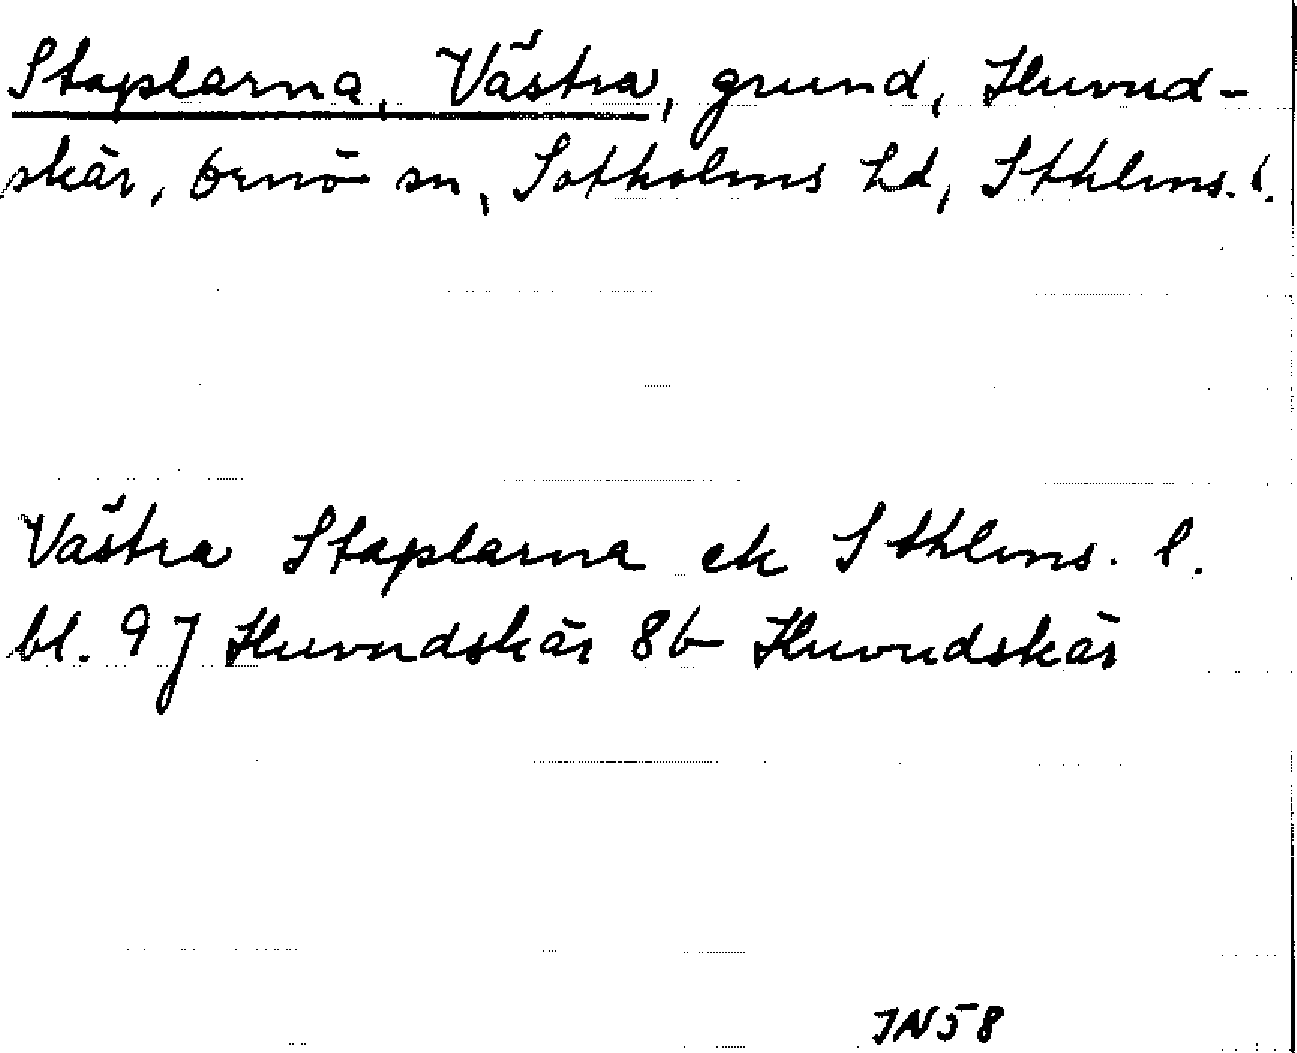 Staplarna, Västra, grund, Huvud-
skär, Ornö sn, Sotholms hd, Sthlms. l.
Västra Staplarna ek Sthlms. l.
bl. 97 Huvudskär 8b Huvudskär
JN58